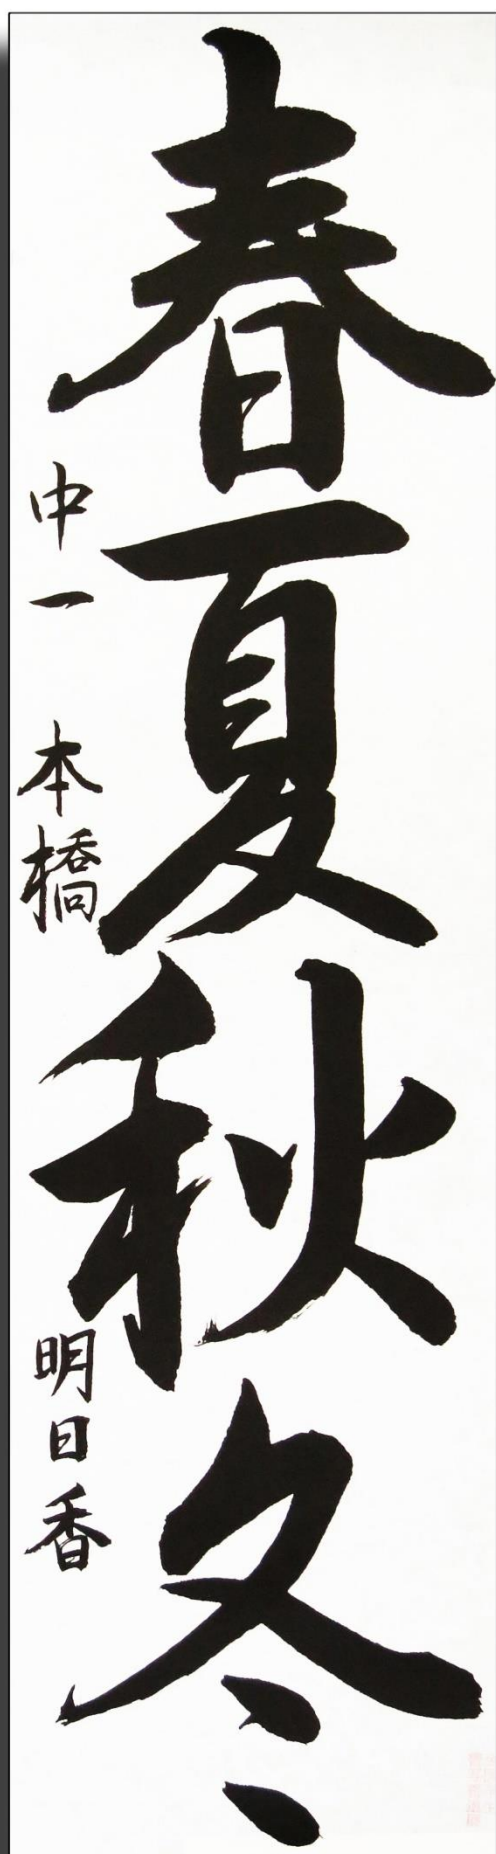 春夏秋冬
中一 本橋 明日香